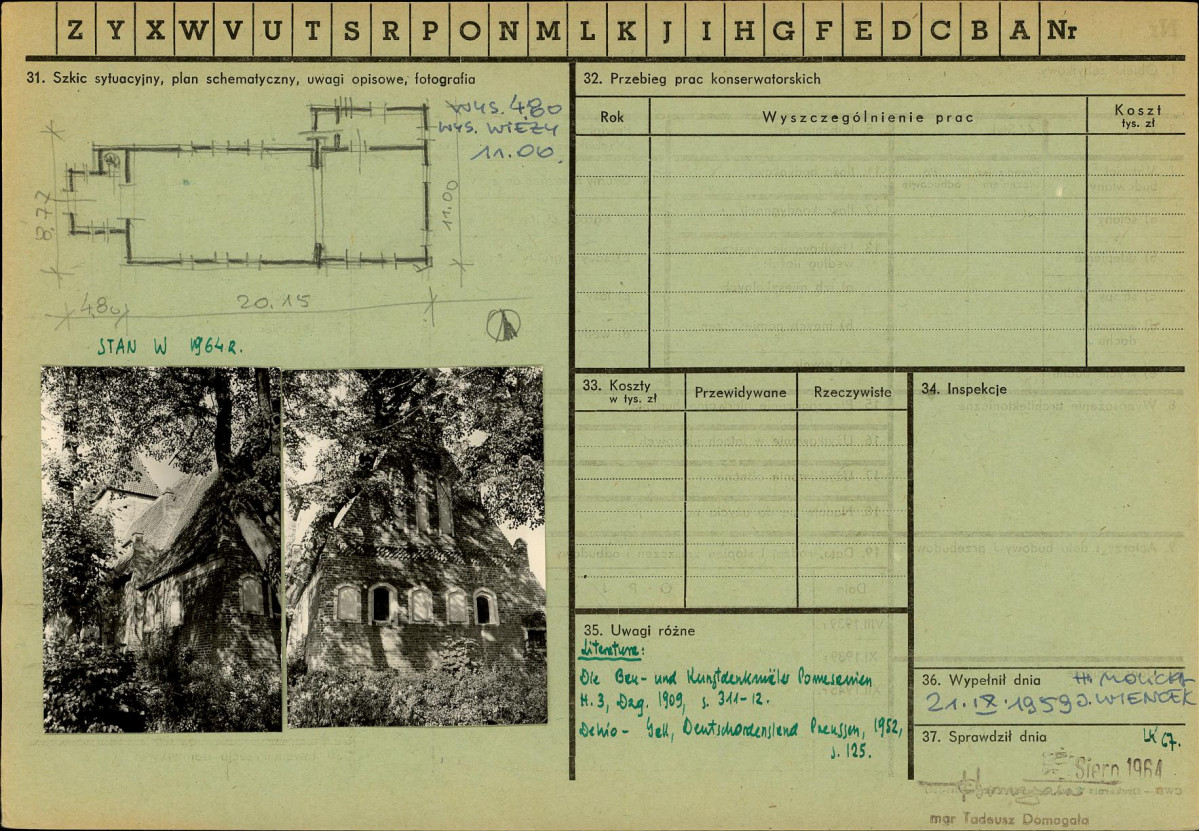 Z Y X W V U T S R P O N M L K J I H G F E D C B A Nr
31. Szkic sytuacyjny, plan schematyczny, uwagi opisowe, fotografia
WYS. 4.80
WYS. WIEŻY
11.00.
8.77
11.00
4.80
20.15
STAN W 1964 R.
32. Przebieg prac konserwatorskich
Rok
Wyszczególnienie prac
Koszt
tys. zł
33. Koszty
w tys. zł
Przewidywane
Rzeczywiste
34. Inspekcje
35. Uwagi różne
Literatura:
Die Bau- und Kunstdenkmäler Pomesanien
H. 3, Dzg. 1909, s. 311-12.
Dehio - Gall, Deutschordensland Preussen, 1952,
s. 125.
36. Wypełnił dnia
MOLICKA
21. IX. 1959 J. WIENCEK
37. Sprawdził dnia
67.
Sierp 1964
mgr Tadeusz Domagała